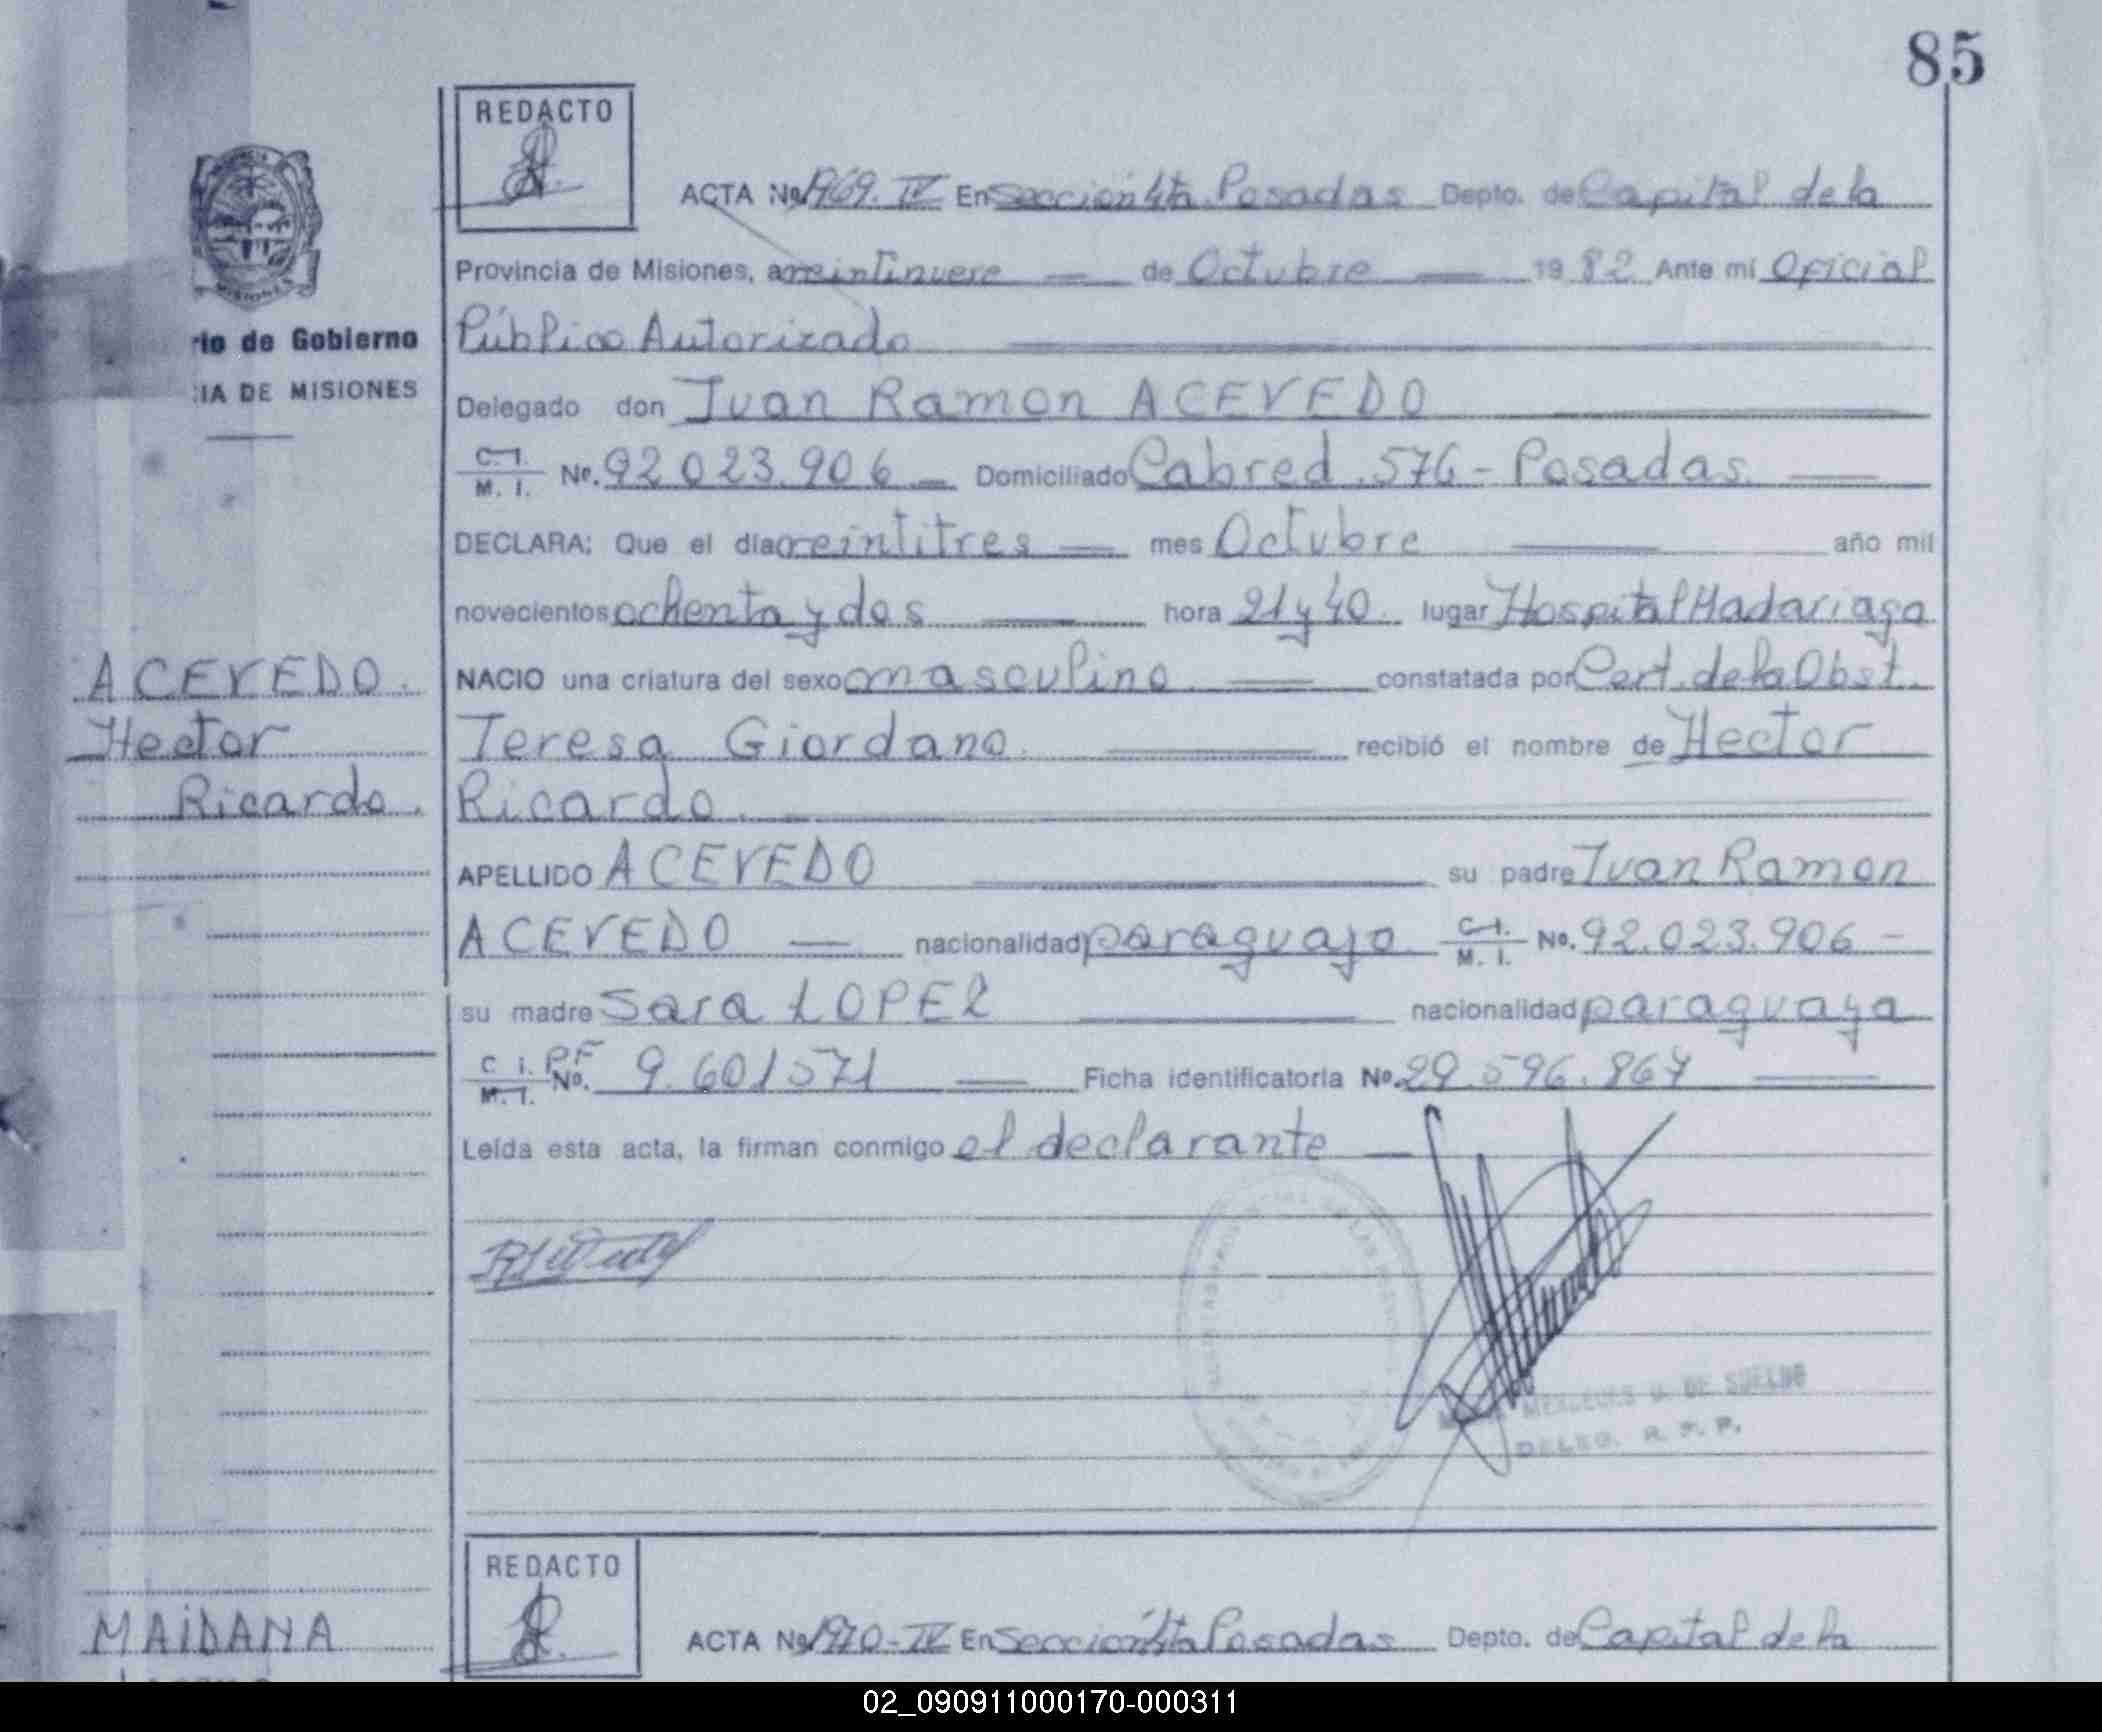 85
REDACTO
ACTA No. 1969. IV En Sección 4ta Posadas Depto. de Capital de la
Provincia de Misiones, a veintinueve de Octubre 1982 Ante mí Oficial
rio de Gobierno
Público Autorizado
IA DE MISIONES
Delegado don Juan Ramon ACEVEDO
C. I. M. I. No. 92.023.906 Domiciliado Cabred. 576 - Posadas.
DECLARA: Que el día veintitres mes Octubre año mil
novecientos ochenta y dos hora 21 y 40. lugar Hospital Madariaga
ACEVEDO.
NACIO una criatura del sexo masculino constatada por Cert. de la Obst.
Hector
Teresa Giordano. recibió el nombre de Hector
Ricardo.
Ricardo.
APELLIDO ACEVEDO su padre Juan Ramon
ACEVEDO nacionalidad paraguayo C. I. M. I. No. 92.023.906 -
su madre Sara LOPEZ nacionalidad paraguaya
C. I. M. I. P.F No. 9.601571 Ficha identificatoria No. 29.596.867
Leída esta acta, la firman conmigo el declarante
DE SUELDO
DELEG. R. P. P.
REDACTO
MAIDANA
ACTA No. 1970 - IV En Sección 4ta Posadas Depto. de Capital de la
02_090911000170-000311